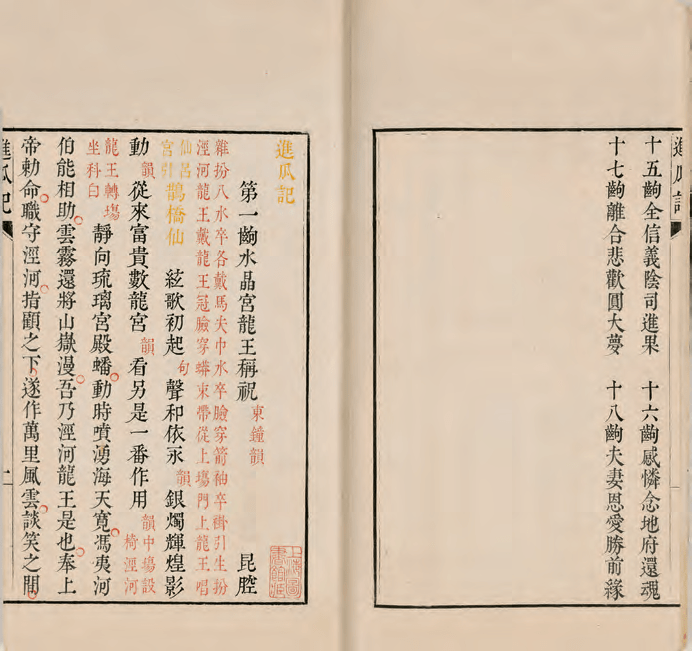 進瓜記
十五齣全信義陰司進果　十六齣感憐念地府還魂
十七齣離合悲歡圓大夢　十八齣夫妻恩愛勝前緣
進瓜記
第一齣水晶宮龍王稱祝　東鐘韻　昆腔
雜扮八水卒各戴馬夫巾水卒臉穿箭袖卒褂引生扮
涇河龍王戴龍王冠臉穿蟒束帶從上場門上龍王唱
仙呂
宮引
鵲橋仙　絃歌初起句聲和依永韻銀燭輝煌影
動韻從來富貴數龍宮韻看另是一番作用韻中場設
椅涇河
龍王轉場
坐科白
靜向琉璃宮殿蟠動時噴湧海天寬馮夷河
伯能相助雲霧還將山嶽漫吾乃涇河龍王是也奉上
帝勅命職守涇河指顧之下遂作萬里風雲談笑之間
進瓜記
上